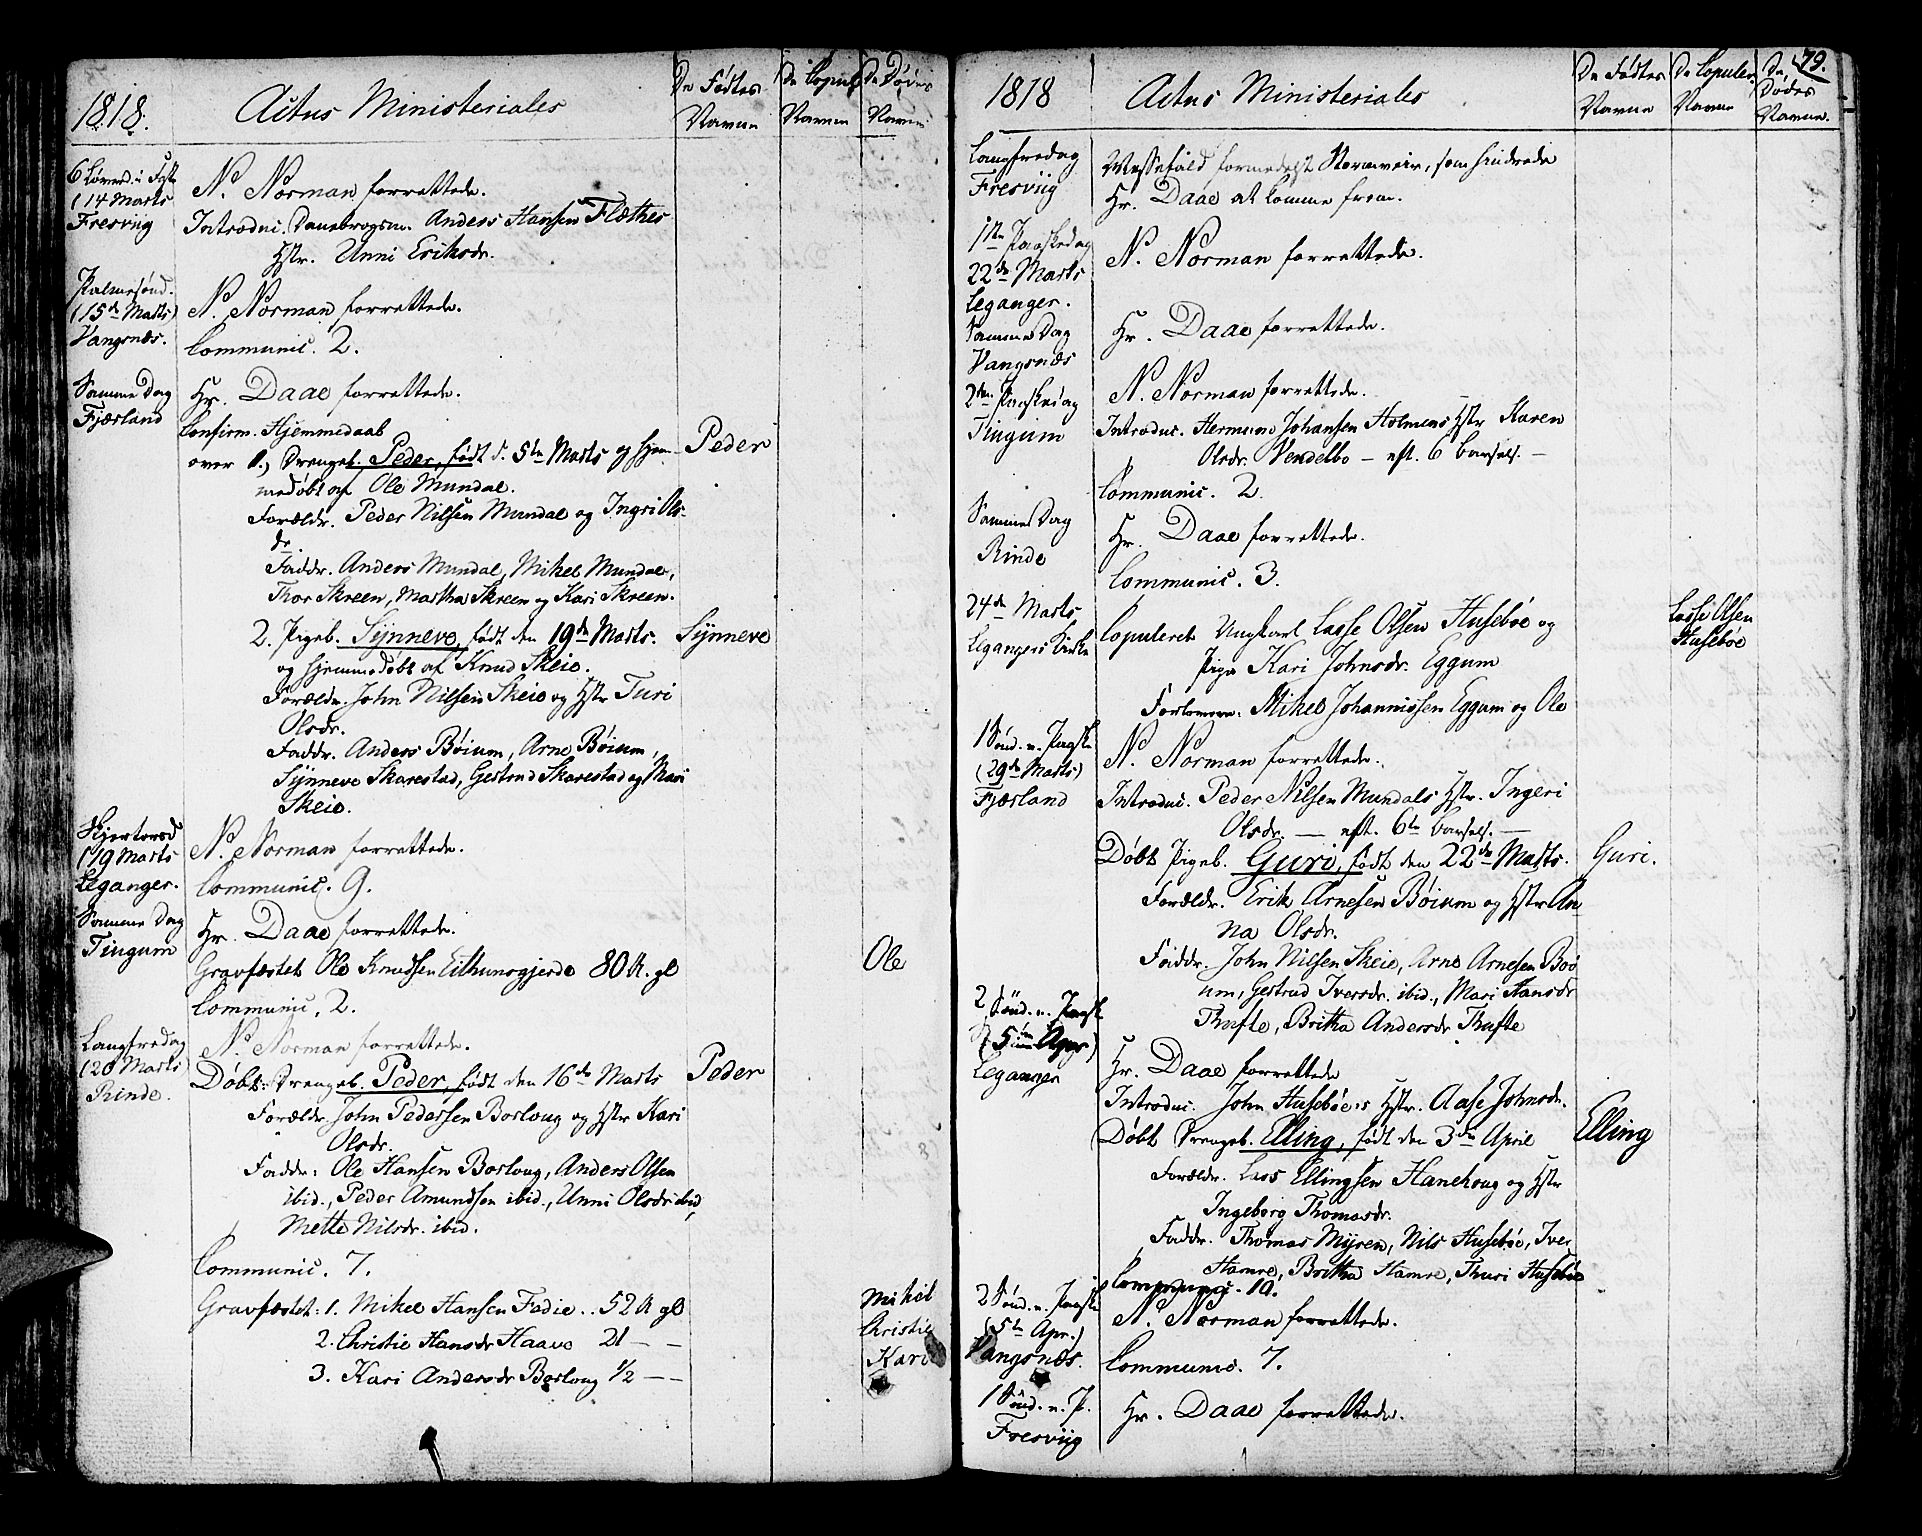 1818.
Actus Ministeriales
De Fødtes Navne
De Copul. Navne
De Dødes Navne
6 Løverd. i Faste
(14 Marts
Fresviig
N. Norman forrettede.
Introduc. Danebrogsm. Anders Hansen Flæthes
Hstr. Unni Eriksdr.
Palmesønd.
(15de Marts)
Vangsnæs.
N. Norman forrettede.
Communic. 2.
Samme Dag
Fjærland
Hr. Daae forrettede.
Confirm. Hjemmedaab
over 1., Drengeb. Peder, født d. 5te Marts og hjem-
Peder
medøbt af Ole Mundal.
Forældr. Peder Nilsen Mundal og Ingri Ols-
dr.
Faddr. Anders Mundal, Mikel Mundal,
Thor Skreen, Martha Skreen og Kari Skreen.
2. Pigeb. Synneve, født den 19de Marts.
Synneve
og hjemmedøbt af Knud Skeie.
Forældr. John Nilsen Skeie og Hstr Turi
Olsdr.
Faddr. Anders Bøium, Arne Bøium,
Synneve Skarestad, Gertrud Skarestad og Mari
Skeie.
Skjertorsd
(19 Marts
Leganger.
N. Norman forrettede.
Communic. 9.
Samme Dag
Tingum
Hr. Daae forrettede.
Gravfæstet Ole Knudsen Eithunsgjerde 80 A. gl
Ole
Communic, 2.
Langfredag
(20 Marts)
Rinde.
N. Norman forrettede.
Døbt: Drengeb. Peder, født den 16de Marts
Peder
Forældr. John Pedersen Borloug og Hstr Kari
Olsdr.
Faddr: Ole Hansen Borloug, Anders Olsen
ibid., Peder Amundsen ibid., Unni Olsdr ibid,
Mette Nilsdr. ibid.
Communic. 7.
Gravfæstet: 1. Mikel Hansen Fedie .. 52 A gl
Mikel
2. Christie Hansdr Haave 21 – –
Christie
3. Kari Andersdr Borloug 1/2 – –
Kari
79.
1818
Actus Ministeriales
De Fødtes Navne
De Copuler. Navne
De Dødes Navne.
Langfredag
Fresviig
Messefald formedelst Stormveir, som hindrede
Hr. Daae at komme frem.
1ste Paaskedag
22de Marts
Leganger.
N. Norman forrettede.
Samme Dag
Vangsnæs
Hr. Daae forrettede.
2den Paaskedag
Tingum
N. Norman forrettede.
Introduc. Herman Johansen Holmens Hstr Karen
Olsdr. Vendelbo – eft. 6 barsels. –
Communic. 2.
Samme Dag
Rinde
Hr. Daae forrettede.
Communic. 3.
24de Marts
Legangers Kirke
Copuleret Ungkarl Lasse Olsen Husebøe og
Lasse Olsen
Husebøe
Pige Kari Johnsdr. Eggum
Forlovere: Mikel Johannissen Eggum og Ole
1 Sønd. e. Paaske
(29de Marts)
Fjærland
N. Norman forrettede.
Introduc. Peder Nilsen Mundals Hstr. Ingeri
Olsdr. – eft. 6te barsels. –
Døbt Pigeb. Guri, født den 22de Marts.
Guri.
Forældr. Erik Arnesen Bøium og Hstr An-
na Olsdr.
Faddr. John Nilsen Skeie, Arne Arnesen Bøi
um, Gertrud Iversdr. ibid., Mari Hansdr
Thufte, Britha Andersdr Thufte
2 Sønd. e. Paaske
(5 Apr)
Leganger
Hr. Daae forrettede
Introduc. John Husebøe's Hstr. Aase Johnsdr.
Døbt Drengeb. Elling, født den 3die April
Elling
Forældr. Lars Ellingsen Hanehoug og Hstr
Ingeborg Thomasdr.
Faddr. Thomas Myren, Nils Husebøe, Iver
Hamre, Britha Hamre, Thuri Husebøe
Communic. 10.
2 Sønd. e. Paaske
(5te Apr.)
Vangsnæs.
N. Norman forrettede.
Communic. 7.
1 Sønd. e. P.
Fresviig
Hr. Daae forrettede.